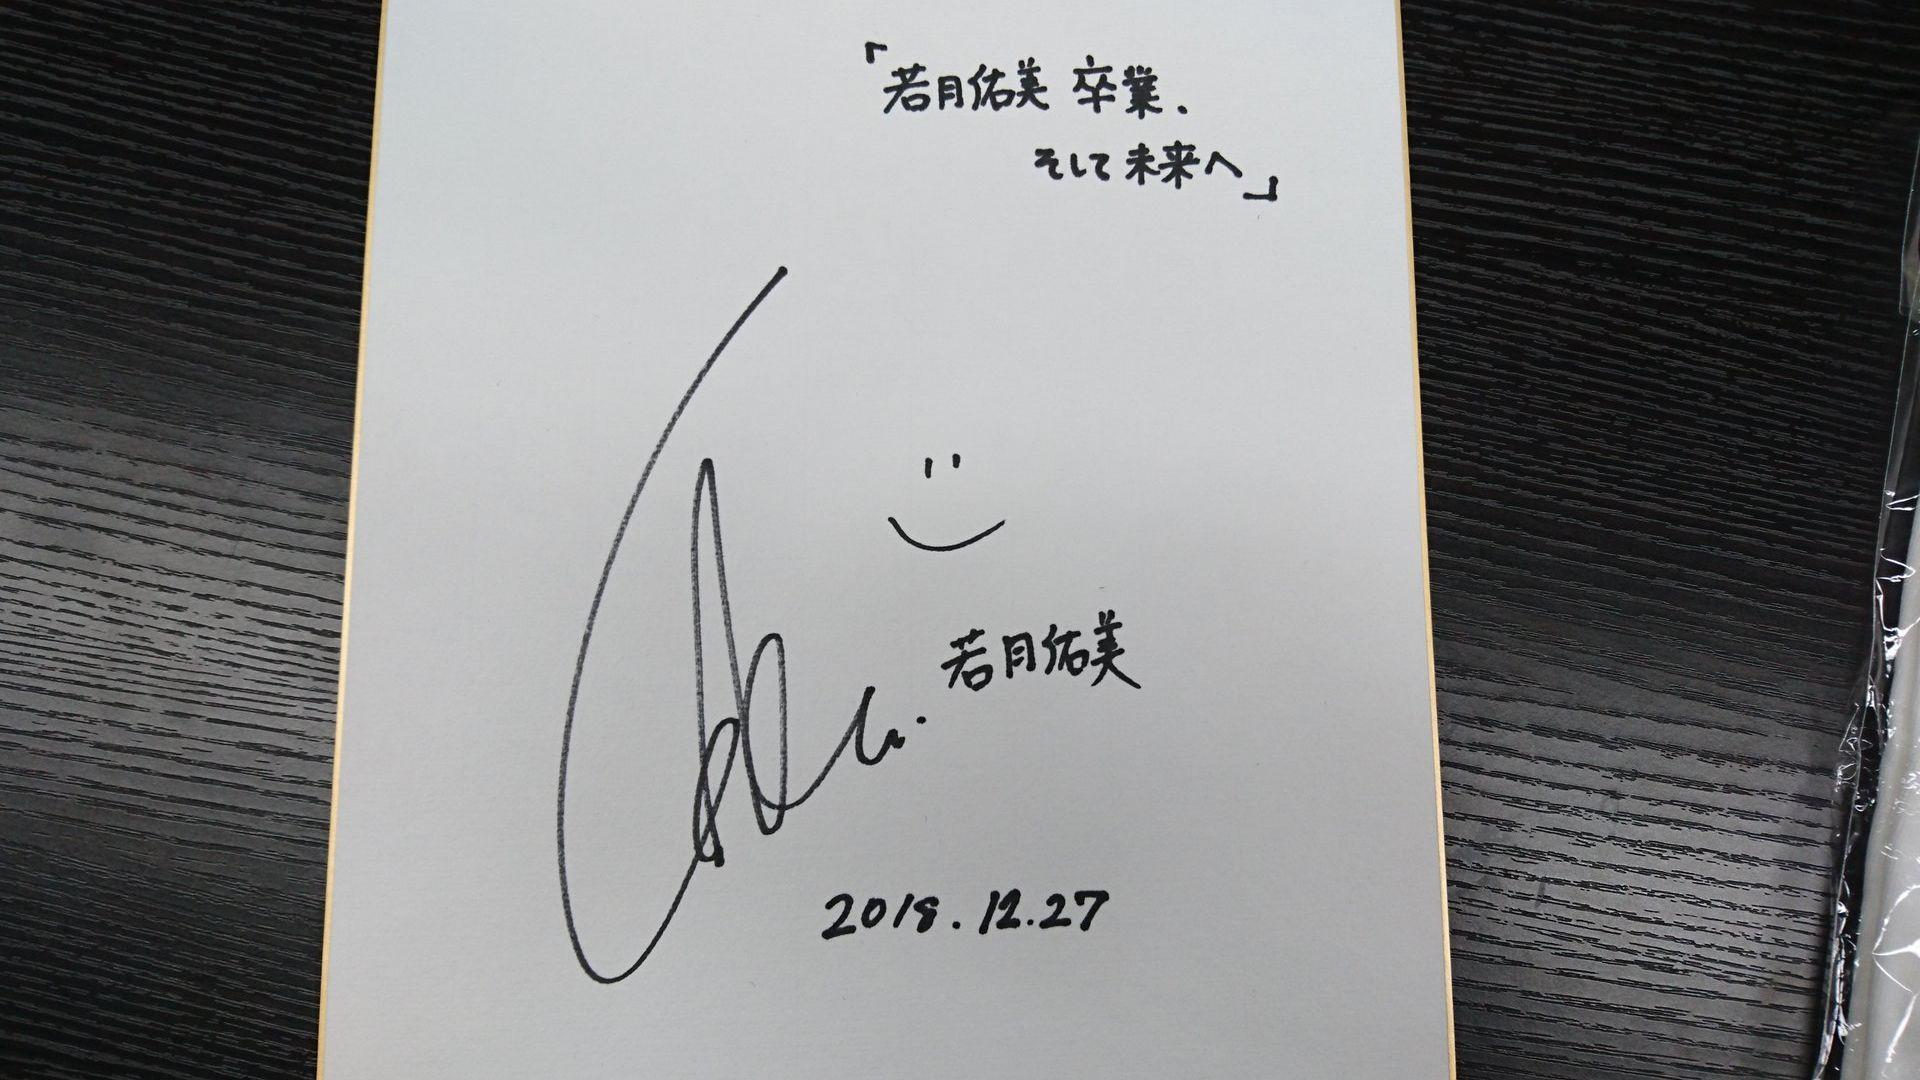 「若月佑美 卒業、
そして未来へ」
若月佑美
2018.12.27